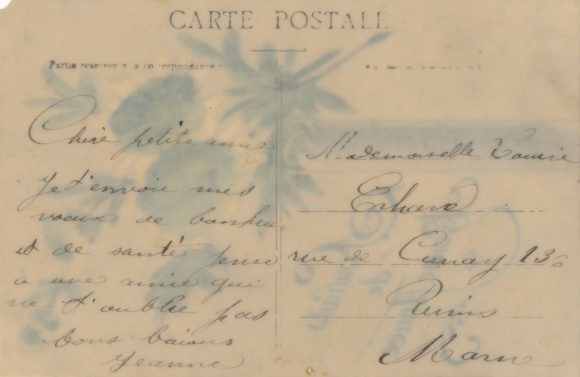 CARTE POSTALE
Partie réservée à la correspondance
Chère petite amie
Je t'envoie mes
voeux de bonheur
et de santé pense
a une amie qui
ne t'oublie pas
bons baisers
Jeanne
Mademoiselle Louise
rue de Cernay 136
Reims
Marne